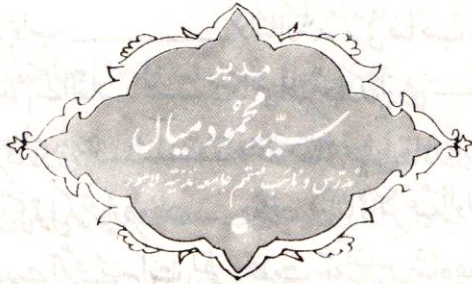 مدیر
سیّد محمُود میاں
مُدرّس و نائب مُہتمم جامعہ مَدَنیّہ لاہور